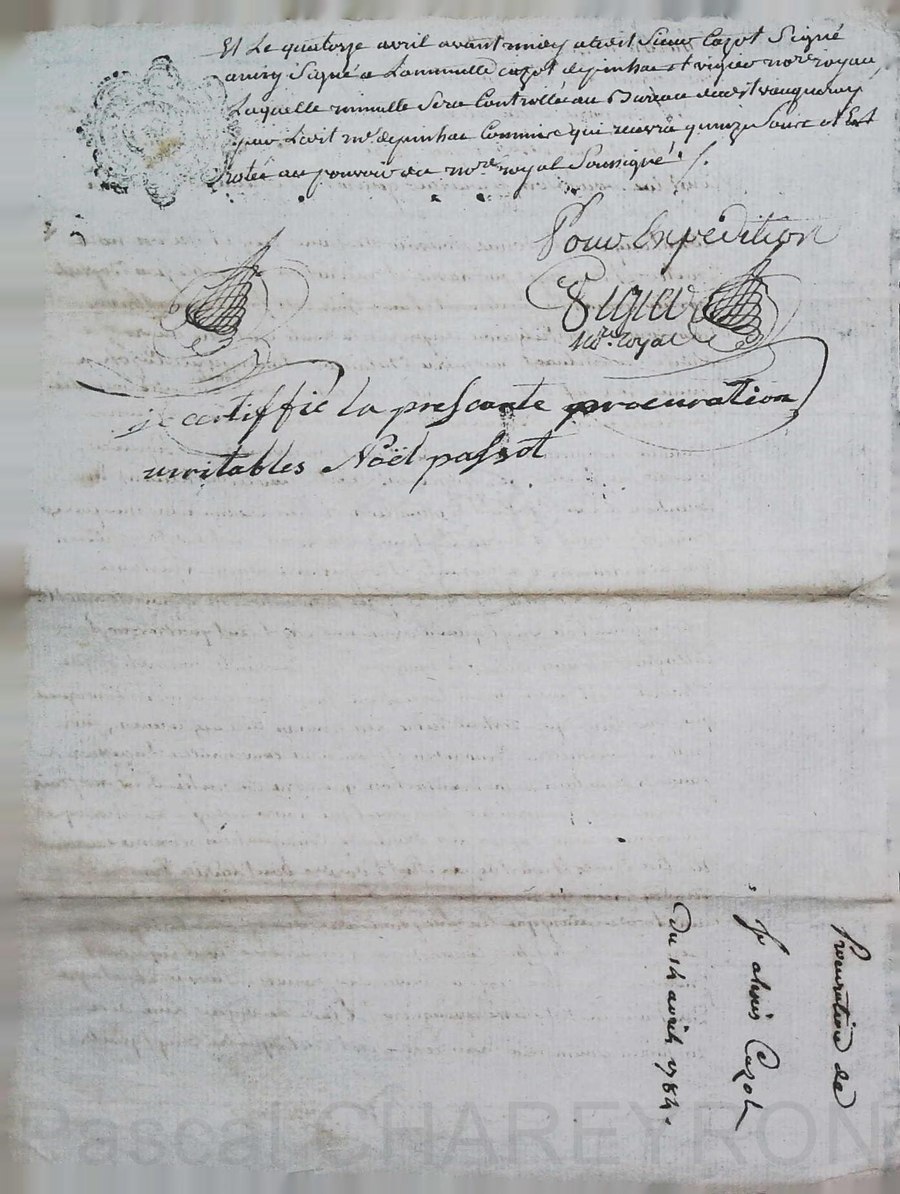 Et Le quatorze avril avant midy a ledit Sieur Cazot Signé
ainsy Signé a La minutte cazot depinhac et vigier nore royau
Laquelle minutte Sera Controllée au Bureau
par Ledit mr depinhac Commis qui recevra quinze Sous et Est
au pouvoir du nore royal Soussigné ·/.
Pour Expédition
Vigier
nore royal
je certiffie la presente procuration
veritables Noël passot
Procuration de
Sr alexis Cazot
Du 14 avril 1784.
Pascal CHAREYRON